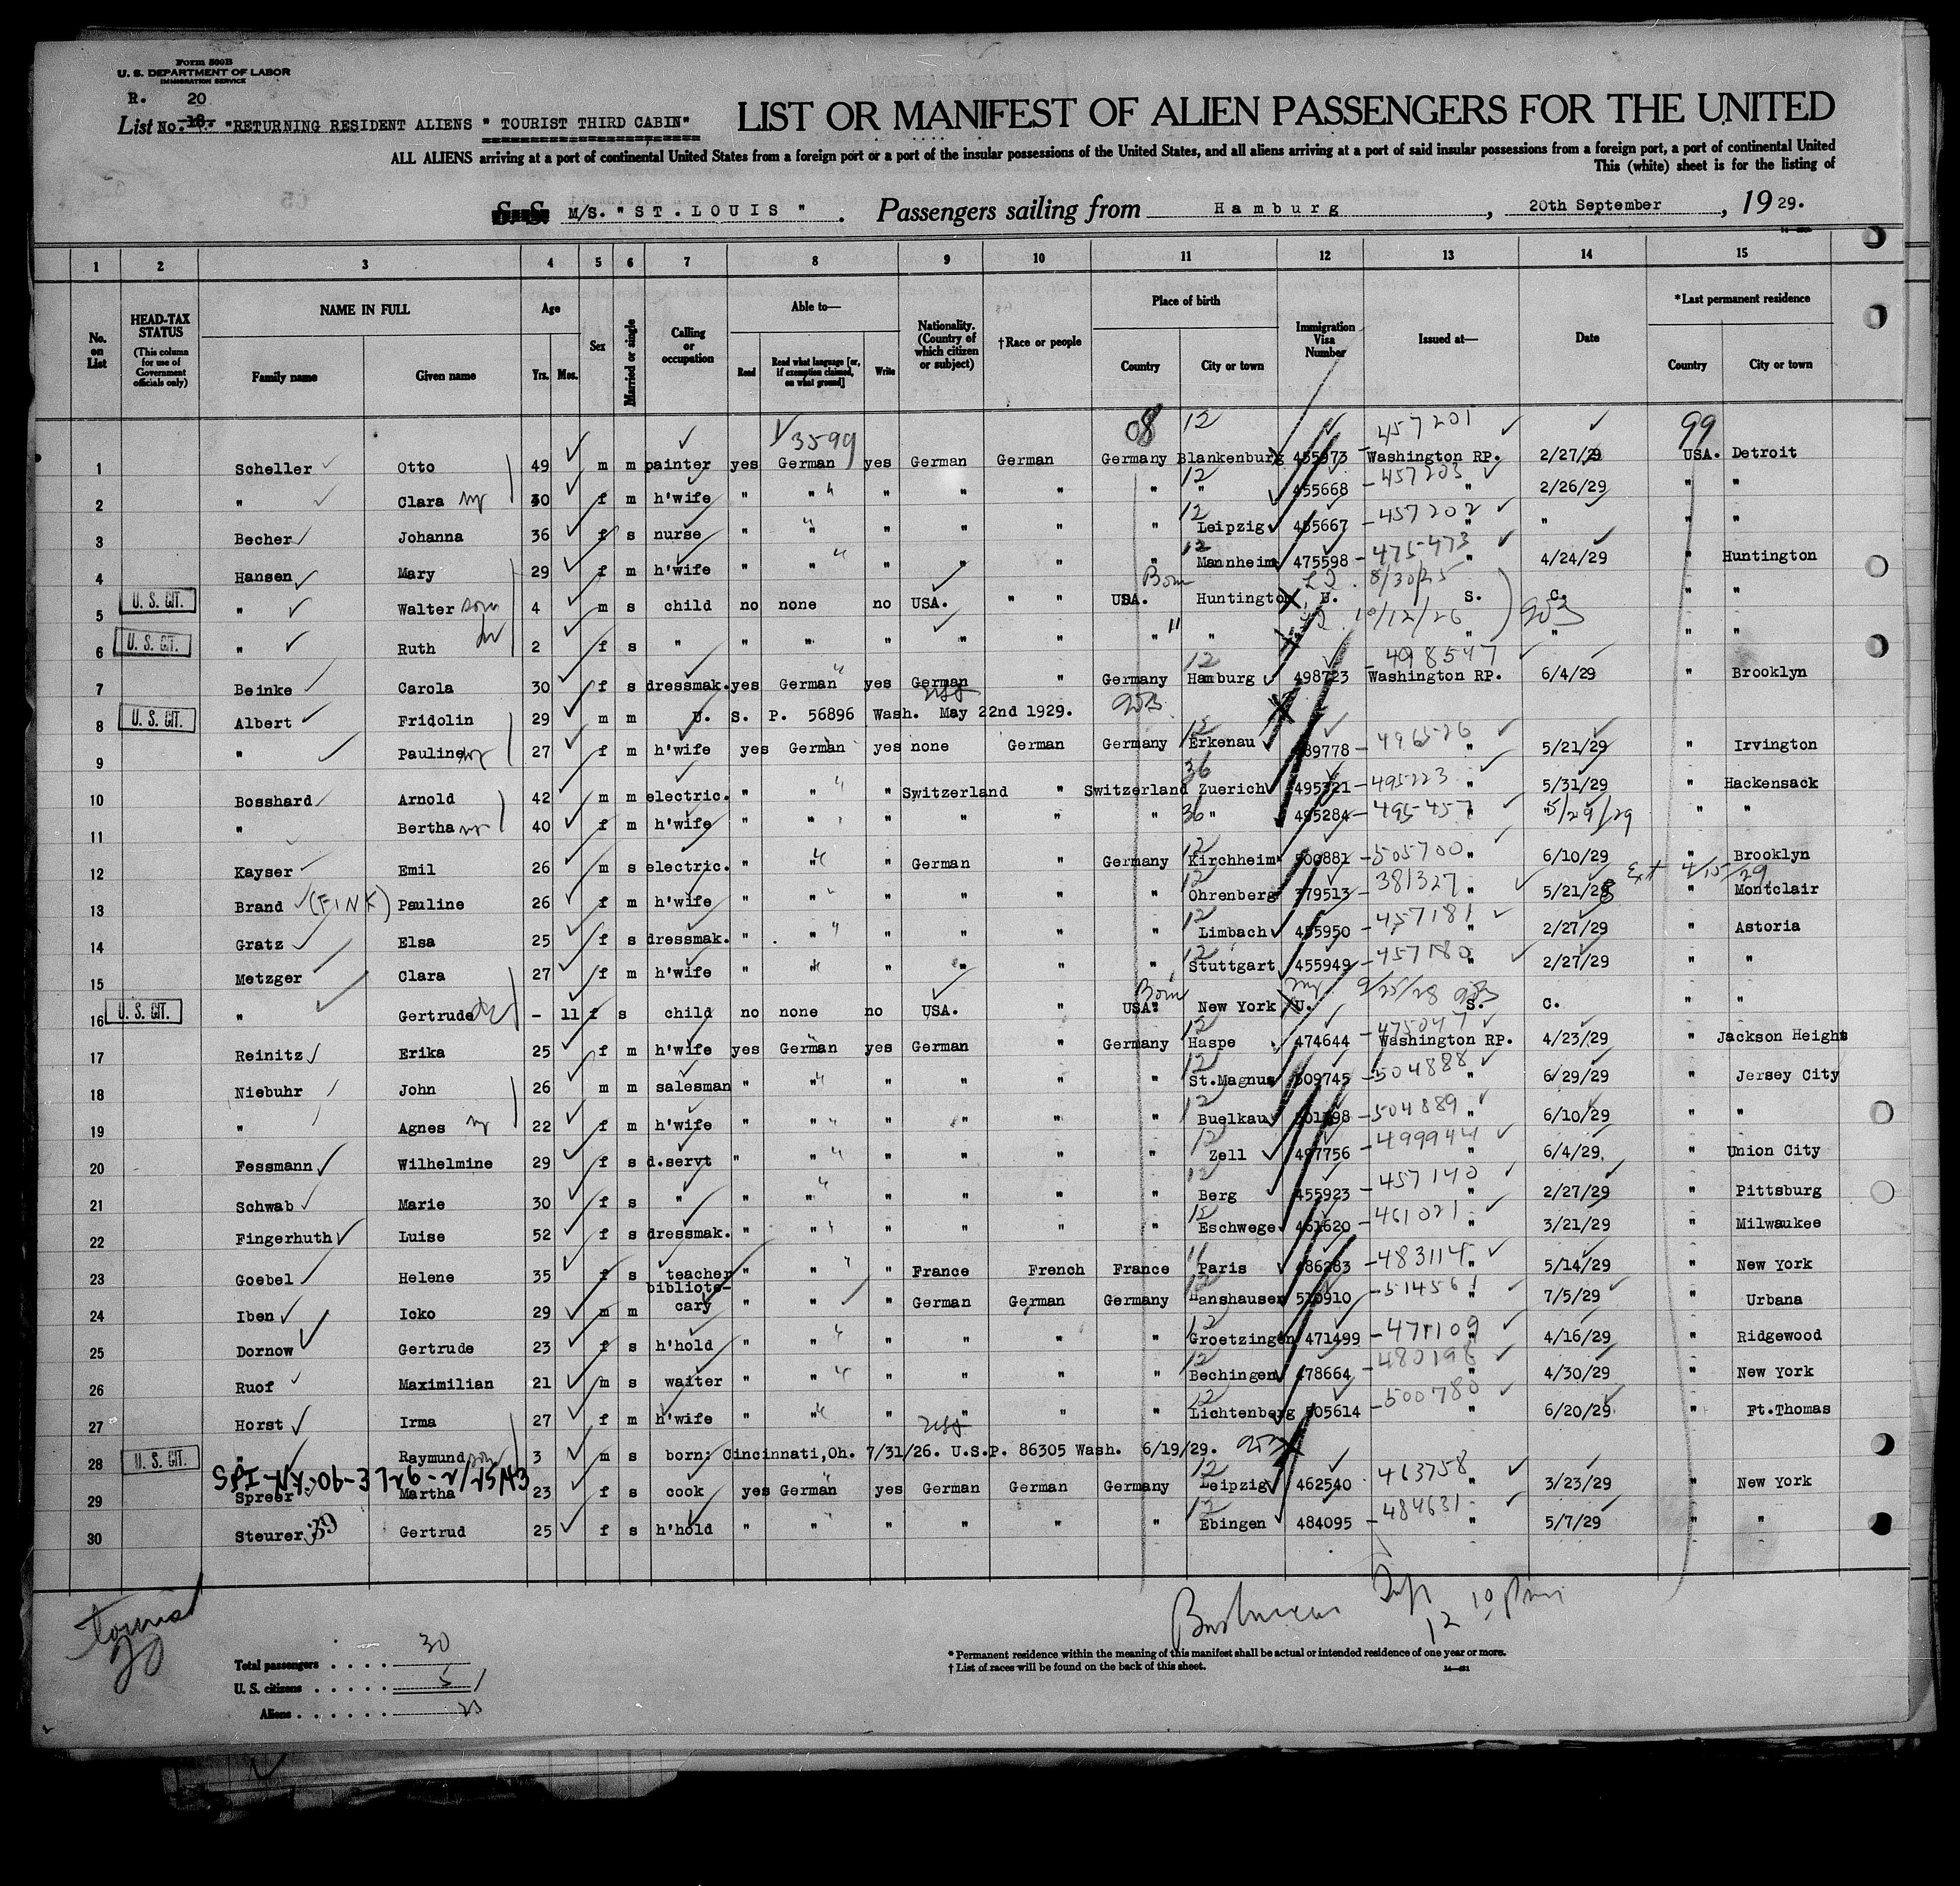 Form 500B
U. S. DEPARTMENT OF LABOR
IMMIGRATION SERVICE
R. 20
List No. 18. "RETURNING RESIDENT ALIENS " TOURIST THIRD CABIN"
LIST OR MANIFEST OF ALIEN PASSENGERS FOR THE UNITED
ALL ALIENS arriving at a port of continental United States from a foreign port or a port of the insular possessions of the United States, and all aliens arriving at a port of said insular possessions from a foreign port, a port of continental United
This (white) sheet is for the listing of
S. S. M/S. "ST.LOUIS " . Passengers sailing from Hamburg , 20th September , 19 29.
1 2 3 4 5 6 7 8 9 10 11 12 13 14 15
No. on List
HEAD-TAX STATUS (This column for use of Government officials only)
NAME IN FULL Family name Given name
Age Yrs. Mos.
Sex
Married or single
Calling or occupation
Able to— Read Read what language [or, if exemption claimed, on what ground] Write
Nationality. (Country of which citizen or subject)
†Race or people
Place of birth Country City or town
Immigration Visa Number
Issued at—
Date
*Last permanent residence Country City or town
3599 08 12 457201 99
1 Scheller Otto 49 m m painter yes German yes German German Germany Blankenburg 455973 Washington RP. 2/27/29 USA. Detroit
12 457203
2 " Clara 30 f m h'wife " " " " " " " 455668 " 2/26/29 " "
12 457202
3 Becher Johanna 36 f s nurse " " " " " " Leipzig 455667 " " " "
12 475473
4 Hansen Mary 29 f m h'wife " " " " " " Mannheim 475598 " 4/24/29 " Huntington
Born 8/30/25
5 U. S. CIT. " Walter son 4 m s child no none no USA. " " USA. Huntington, U. S. C. " "
10/12/26 903
6 U. S. CIT. " Ruth 2 f s " " " " " " " " " " " "
12 498547
7 Beinke Carola 30 f s dressmak. yes German yes German " Germany Hamburg 498723 Washington RP. 6/4/29 " Brooklyn
8 U. S. CIT. Albert Fridolin 29 m m U. S. P. 56896 Wash. May 22nd 1929. 903
12 496526
9 " Pauline 27 f m h'wife yes German yes none German Germany Erkenau 489778 " 5/21/29 " Irvington
36 495223
10 Bosshard Arnold 42 m m electric. " " " Switzerland " Switzerland Zuerich 495321 " 5/31/29 " Hackensack
36 495457
11 " Bertha 40 f m h'wife " " " " " " " 495284 " 5/29/29 " "
12 505700
12 Kayser Emil 26 m s electric. " " " German " Germany Kirchheim 500881 " 6/10/29 " Brooklyn
12 381327 Ext 4/15/29
13 Brand (FINK) Pauline 26 f m h'wife " " " " " " Ohrenberg 379513 " 5/21/28 " Montclair
12 457181
14 Gratz Elsa 25 f s dressmak. " " " " " " Limbach 455950 " 2/27/29 " Astoria
12 457180
15 Metzger Clara 27 f m h'wife " " " " " " Stuttgart 455949 " 2/27/29 " "
Born 9/25/28 903
16 U. S. CIT. " Gertrude - 11 f s child no none no USA. " USA. New York U. S. C. " "
12 475047
17 Reinitz Erika 25 f m h'wife yes German yes German " Germany Haspe 474644 Washington RP. 4/23/29 " Jackson Heights
12 504888
18 Niebuhr John 26 m m salesman " " " " " " St.Magnus 509745 " 6/29/29 " Jersey City
12 504889
19 " Agnes 22 f m h'wife " " " " " " Buelkau 501198 " 6/10/29 " "
12 499944
20 Fessmann Wilhelmine 29 f s d.servt " " " " " " Zell 497756 " 6/4/29. " Union City
12 457140
21 Schwab Marie 30 f s " " " " " " " Berg 455923 " 2/27/29 " Pittsburg
12 461021
22 Fingerhuth Luise 52 f s dressmak. " " " " " " Eschwege 461620 " 3/21/29 " Milwaukee
11 483114
23 Goebel Helene 35 f s teacher " " " France French France Paris 486283 " 5/14/29 " New York
12 514561
24 Iben Icko 29 m m bibliote-cary " " " German German Germany Hanshausen 510910 " 7/5/29 " Urbana
12 471109
25 Dornow Gertrude 23 f s h'hold " " " " " " Groetzingen 471499 " 4/16/29 " Ridgewood
12 480198
26 Ruof Maximilian 21 m s waiter " " " " " " Bechingen 478664 " 4/30/29 " New York
12 500780
27 Horst Irma 27 f m h'wife " " " " " " Lichtenberg 505614 " 6/20/29 " Ft.Thomas
28 U. S. CIT. " Raymund son 3 m s born: Cincinnati,Oh. 7/31/26. U.S.P. 86305 Wash. 6/19/29. 903
12 463758
29 Spreer Martha 23 f s cook yes German yes German German Germany Leipzig 462540 " 3/23/29 " New York
12 484631
30 Steurer 39 Gertrud 25 f s h'hold " " " " " " Ebingen 484095 " 5/7/29 " "
Tourist
20
Total passengers . . . . 30
U. S. citizens . . . . . 5
Aliens . . . . . . 25
* Permanent residence within the meaning of this manifest shall be actual or intended residence of one year or more.
† List of races will be found on the back of this sheet.